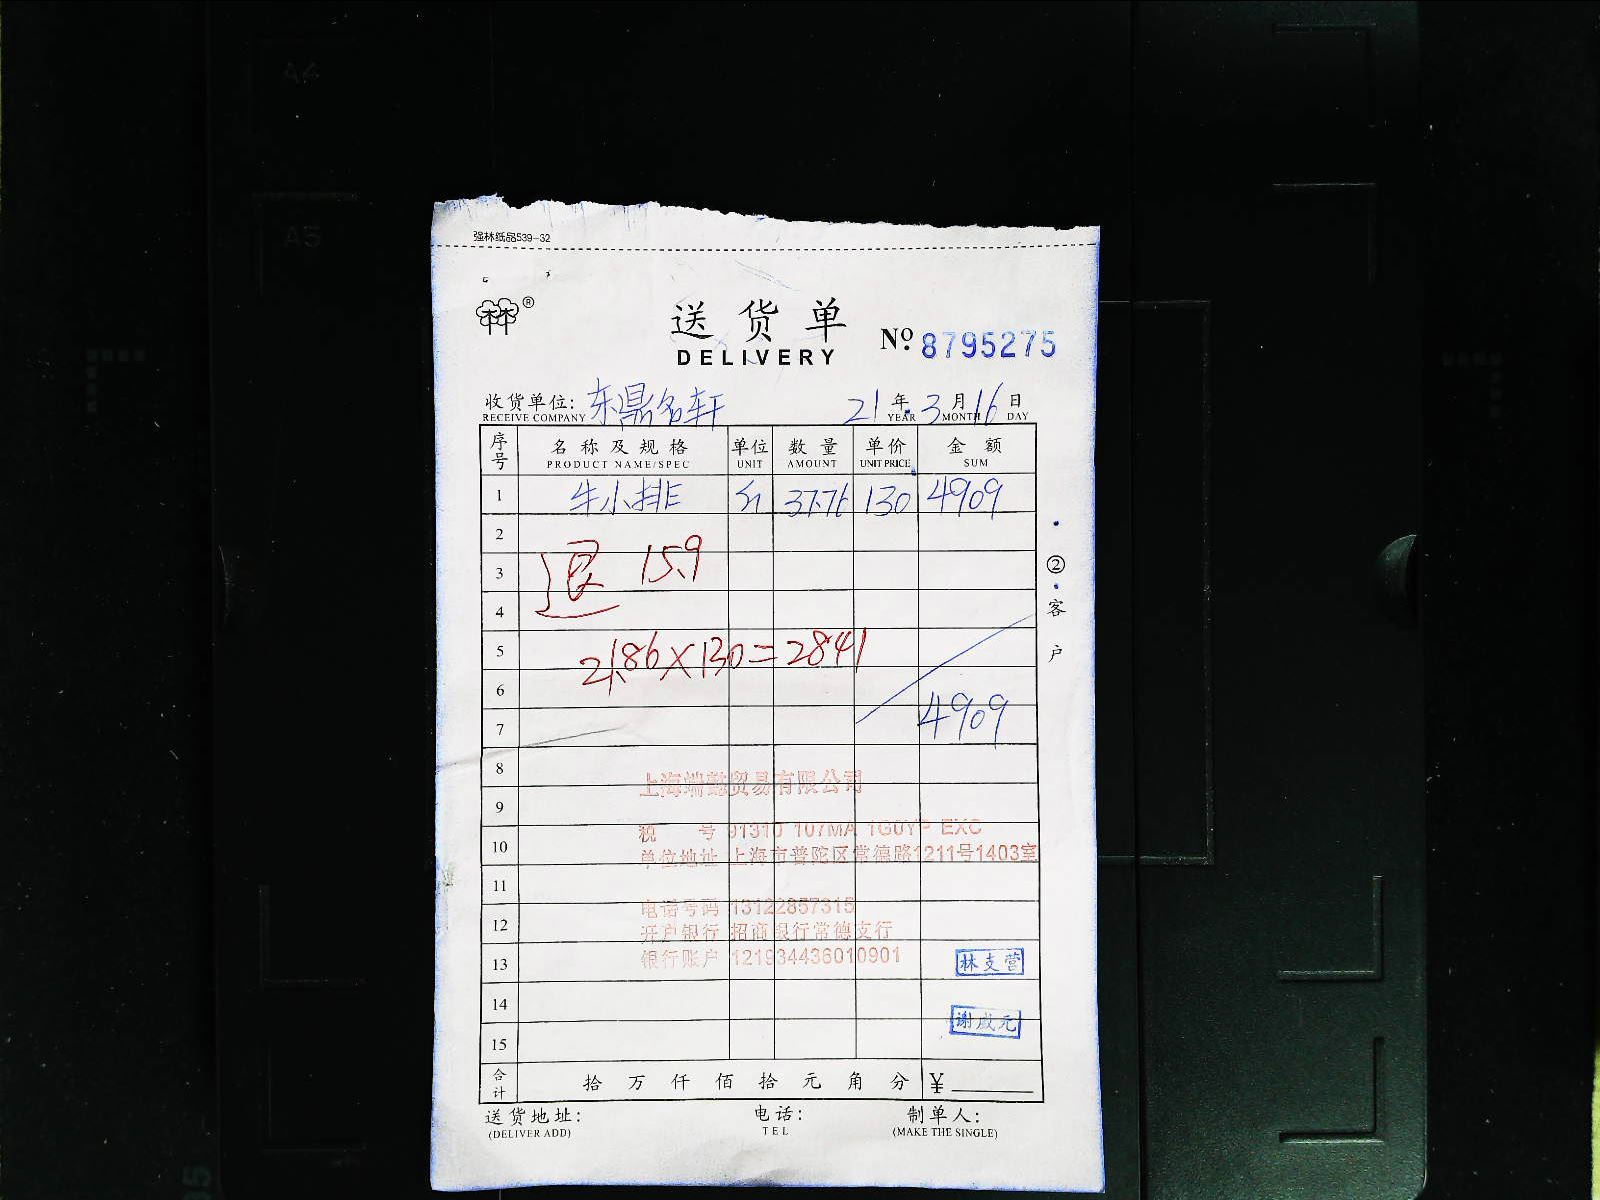 A4
A5
强林纸品539-32
林 ®
送货单
DELIVERY
Nº 8795275
收货单位: 东鼎名轩 21 年 3 月 16 日
RECEIVE COMPANY YEAR MONTH DAY
序号 名称及规格 单位 数量 单价 金额
PRODUCT NAME/SPEC UNIT AMOUNT UNIT PRICE SUM
1 牛小排 斤 37.76 130 4909
2
3 退 15.9
4
5 21.86×130=2841
6
7 4909
② 客户
8 上海端懿贸易有限公司
9
税 号 91310 107MA 1G0YP EXC
10 单位地址 上海市普陀区常德路1211号1403室
11
电话号码 13122857315
12 开户银行 招商银行常德支行
13 银行账户 121934436010901
林支营
14
谢成元
15
合计 拾 万 仟 佰 拾 元 角 分 ¥
送货地址: 电话: 制单人:
(DELIVER ADD) TEL (MAKE THE SINGLE)